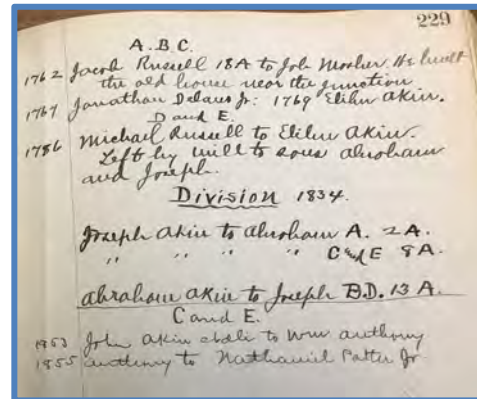 229
A.B.C.
1762 Jacob Russell 18A to Job Mosher. He built
the old house near the junction
1767 Jonathan Delano Jr: 1769 Elihu Akin.
D and E.
1786 Michael Russell to Elihu Akin.
Left by will to sons Abraham
and Joseph.
Division 1834.
Joseph Akin to Abraham A. 2A.
" " " " C and E 8A.
Abraham Akin to Joseph B.D. 13 A.
C and E.
1853 John Akin to Wm Anthony
1855 Anthony to Nathaniel Potter Jr